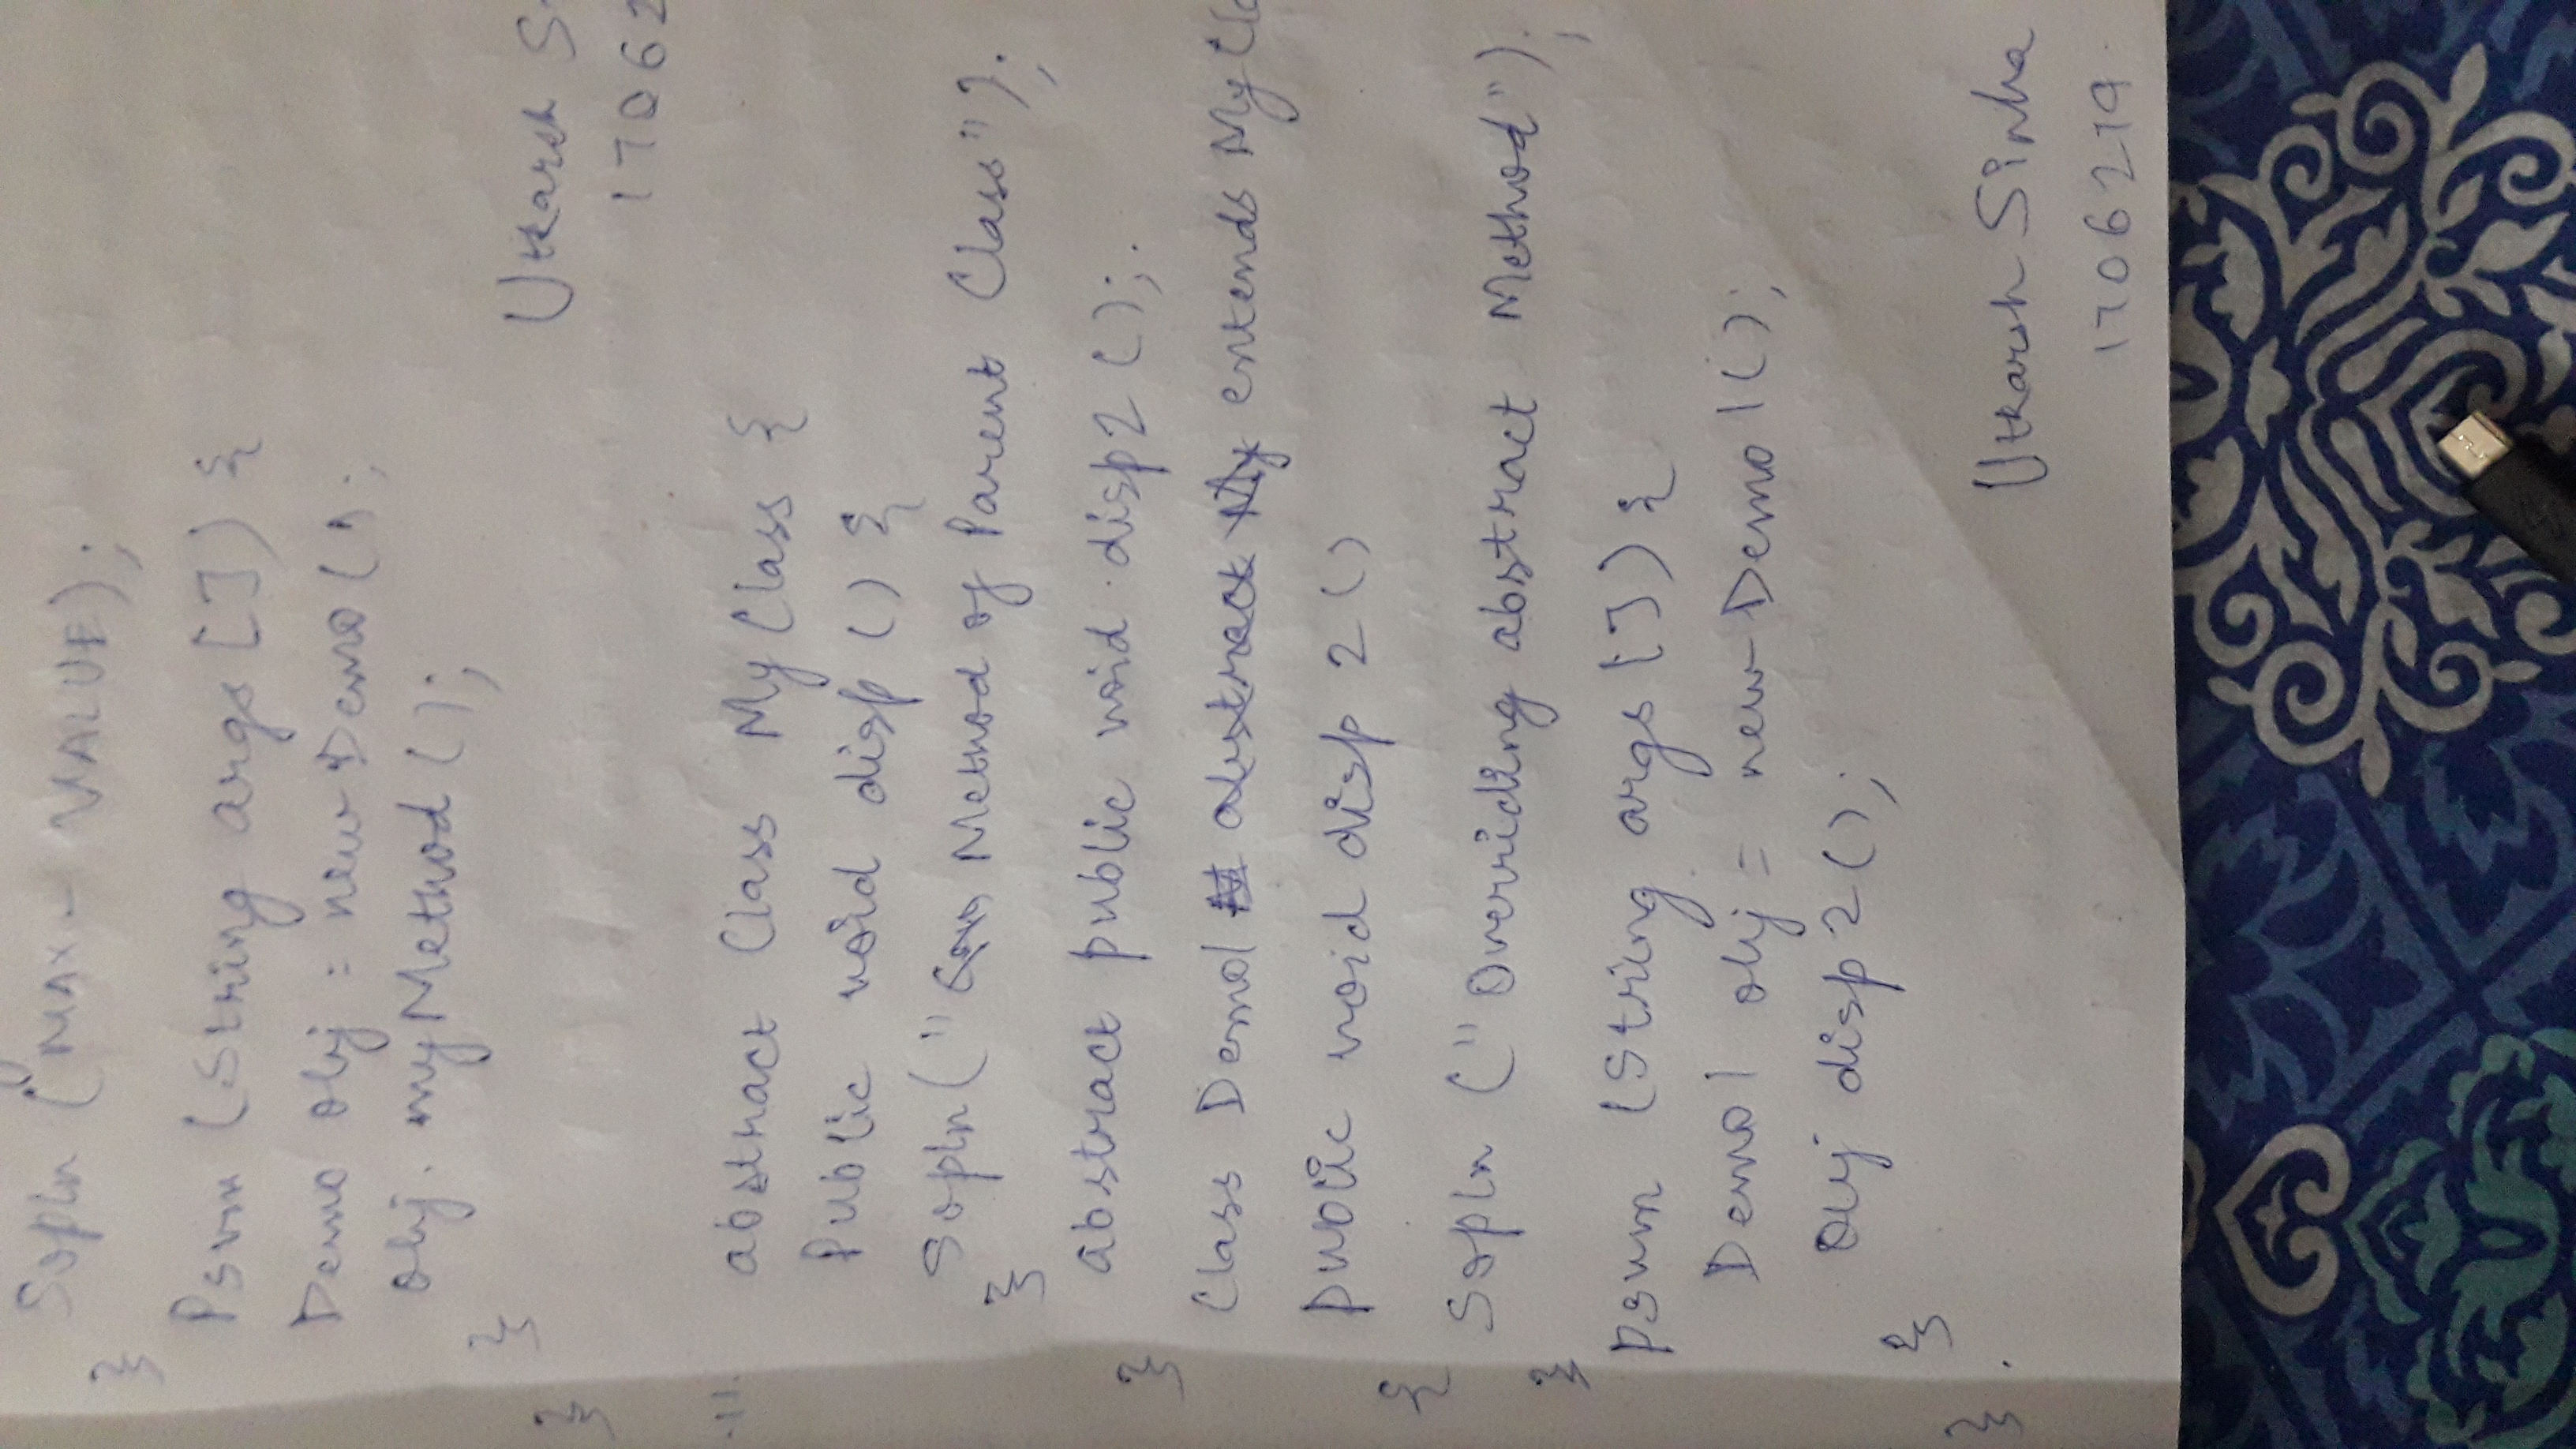 Sopln (MAX - VALUE);
}
Psvm (String args []) {
Demo obj = new Demo();
obj. myMethod ();
}
}
Utkarsh S
17062
11.
abstract Class My Class {
Public void disp () {
Sopln (" Method of Parent Class");
}
abstract public void disp2 ();
}
Class Demo1 extends My Cla
public void disp 2 ()
{
Sopln (" Overriding abstract Method");
}
psvm (String args []) {
Demo1 obj = new Demo1();
Obj disp2 ();
}
}.
Utkarsh Sinha
1706279.